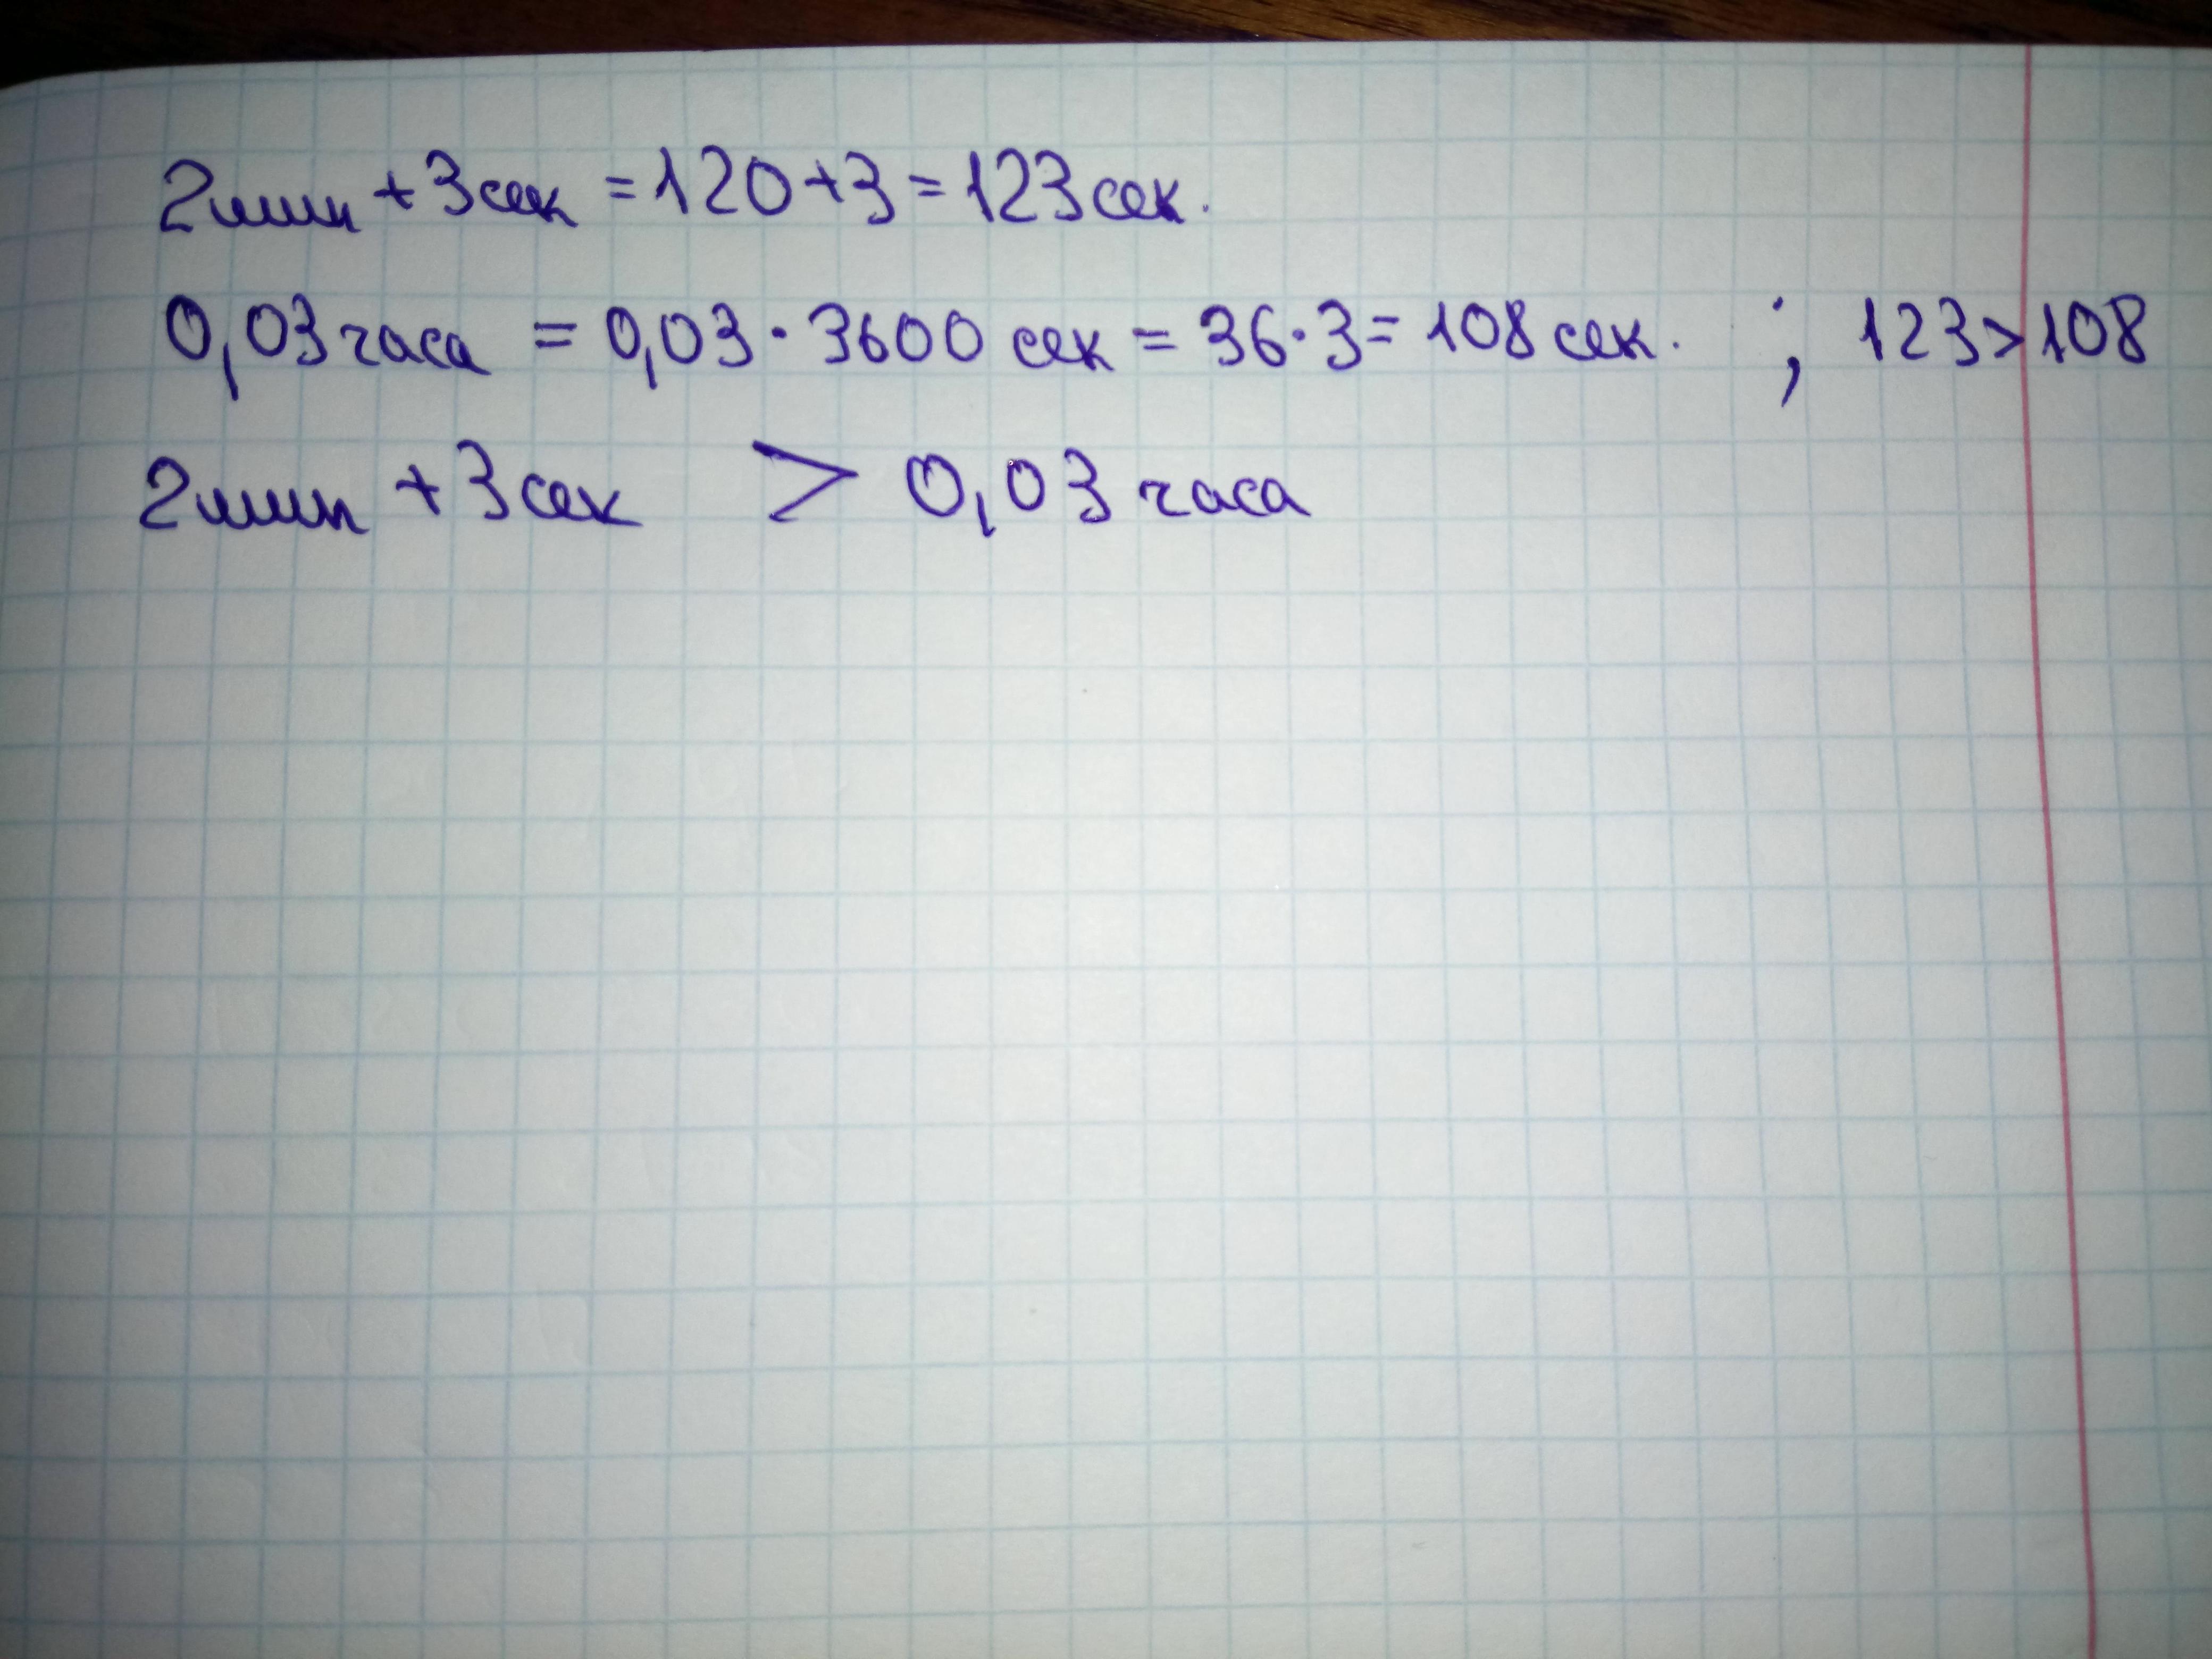 2мин + 3сек = 120+3 = 123сек.
0,03 часа = 0,03 · 3600 сек = 36·3 = 108 сек. ; 123>108
2мин + 3сек > 0,03 часа